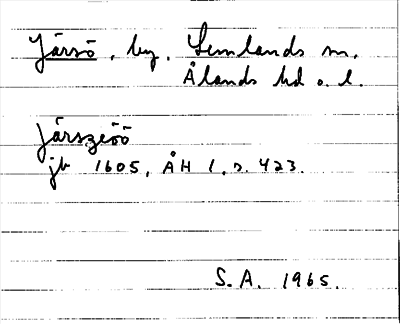 Järsö, by, Lemlands sn,
Ålands hd o. l.
Järszeöö
jb 1605, ÅH 1, s. 423.
S.A. 1965.